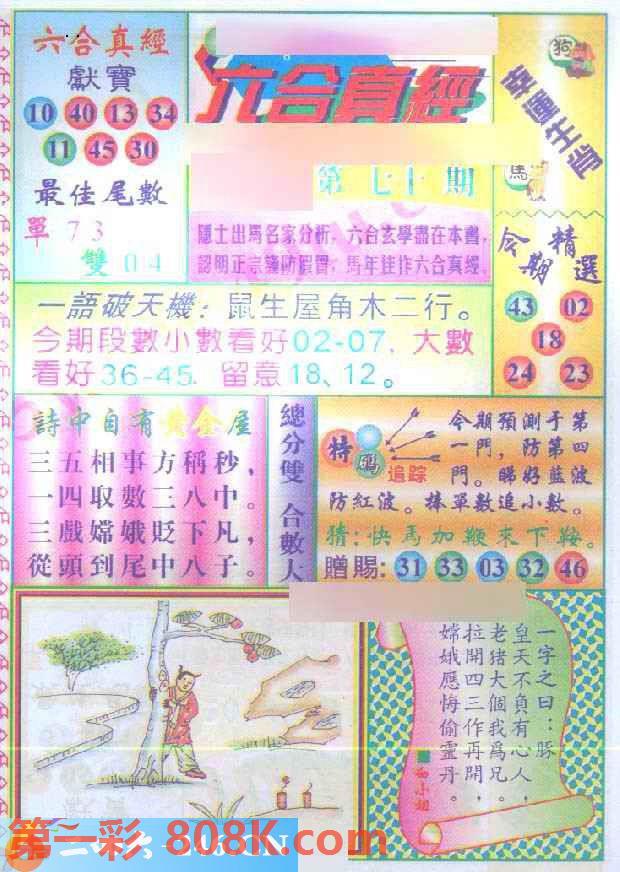 六合真經
獻寶
10 40 13 34
11 45 30
最佳尾數
單 7 3
雙 0 4
六合真經
第七十期
隱士出馬名家分析，六合玄學盡在本書，
認明正宗謹防假冒，馬年佳作六合真經
幸運生肖
狗
馬
今期精選
43 02
18
24 23
一語破天機：鼠生屋角木二行。
今期段數小數看好02-07，大數
看好36-45 留意18、12。
詩中自有黃金屋
三五相事方稱秒，
一四取數三八中。
三戲嫦娥貶下凡，
從頭到尾中八子。
總分雙 合數大
特碼
追踪
今期預測于第
一門，防第四
門。睇好藍波
防紅波。棒單數追小數。
猜：快馬加鞭來下鞍。
贈賜：31 33 03 32 46
一字之曰：豚
皇天不負有心人，
老猪大個我爲兄。
拉開四三作再開，
嫦娥應悔偷靈丹。
第一彩 808K.com